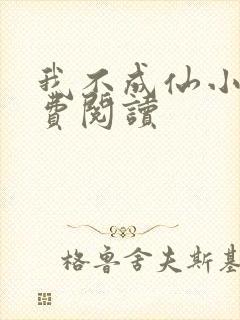 我不成仙小
費閱讀
格魯舍夫斯基